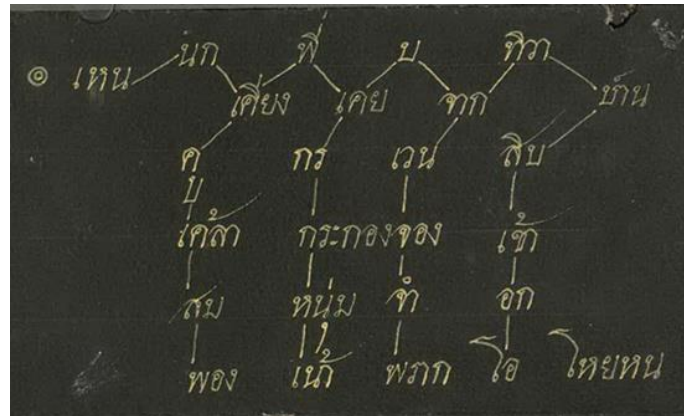 ๏ เหน นก พี่ บ ทิวา
เคียง เคย จาก บ้าน
คู กร เวน สิบ
บ
เคล้า กระกอง จอง เช้า
สม หนุ่ม จำ อก
พอง เนา้ พราก โอ โหยหน